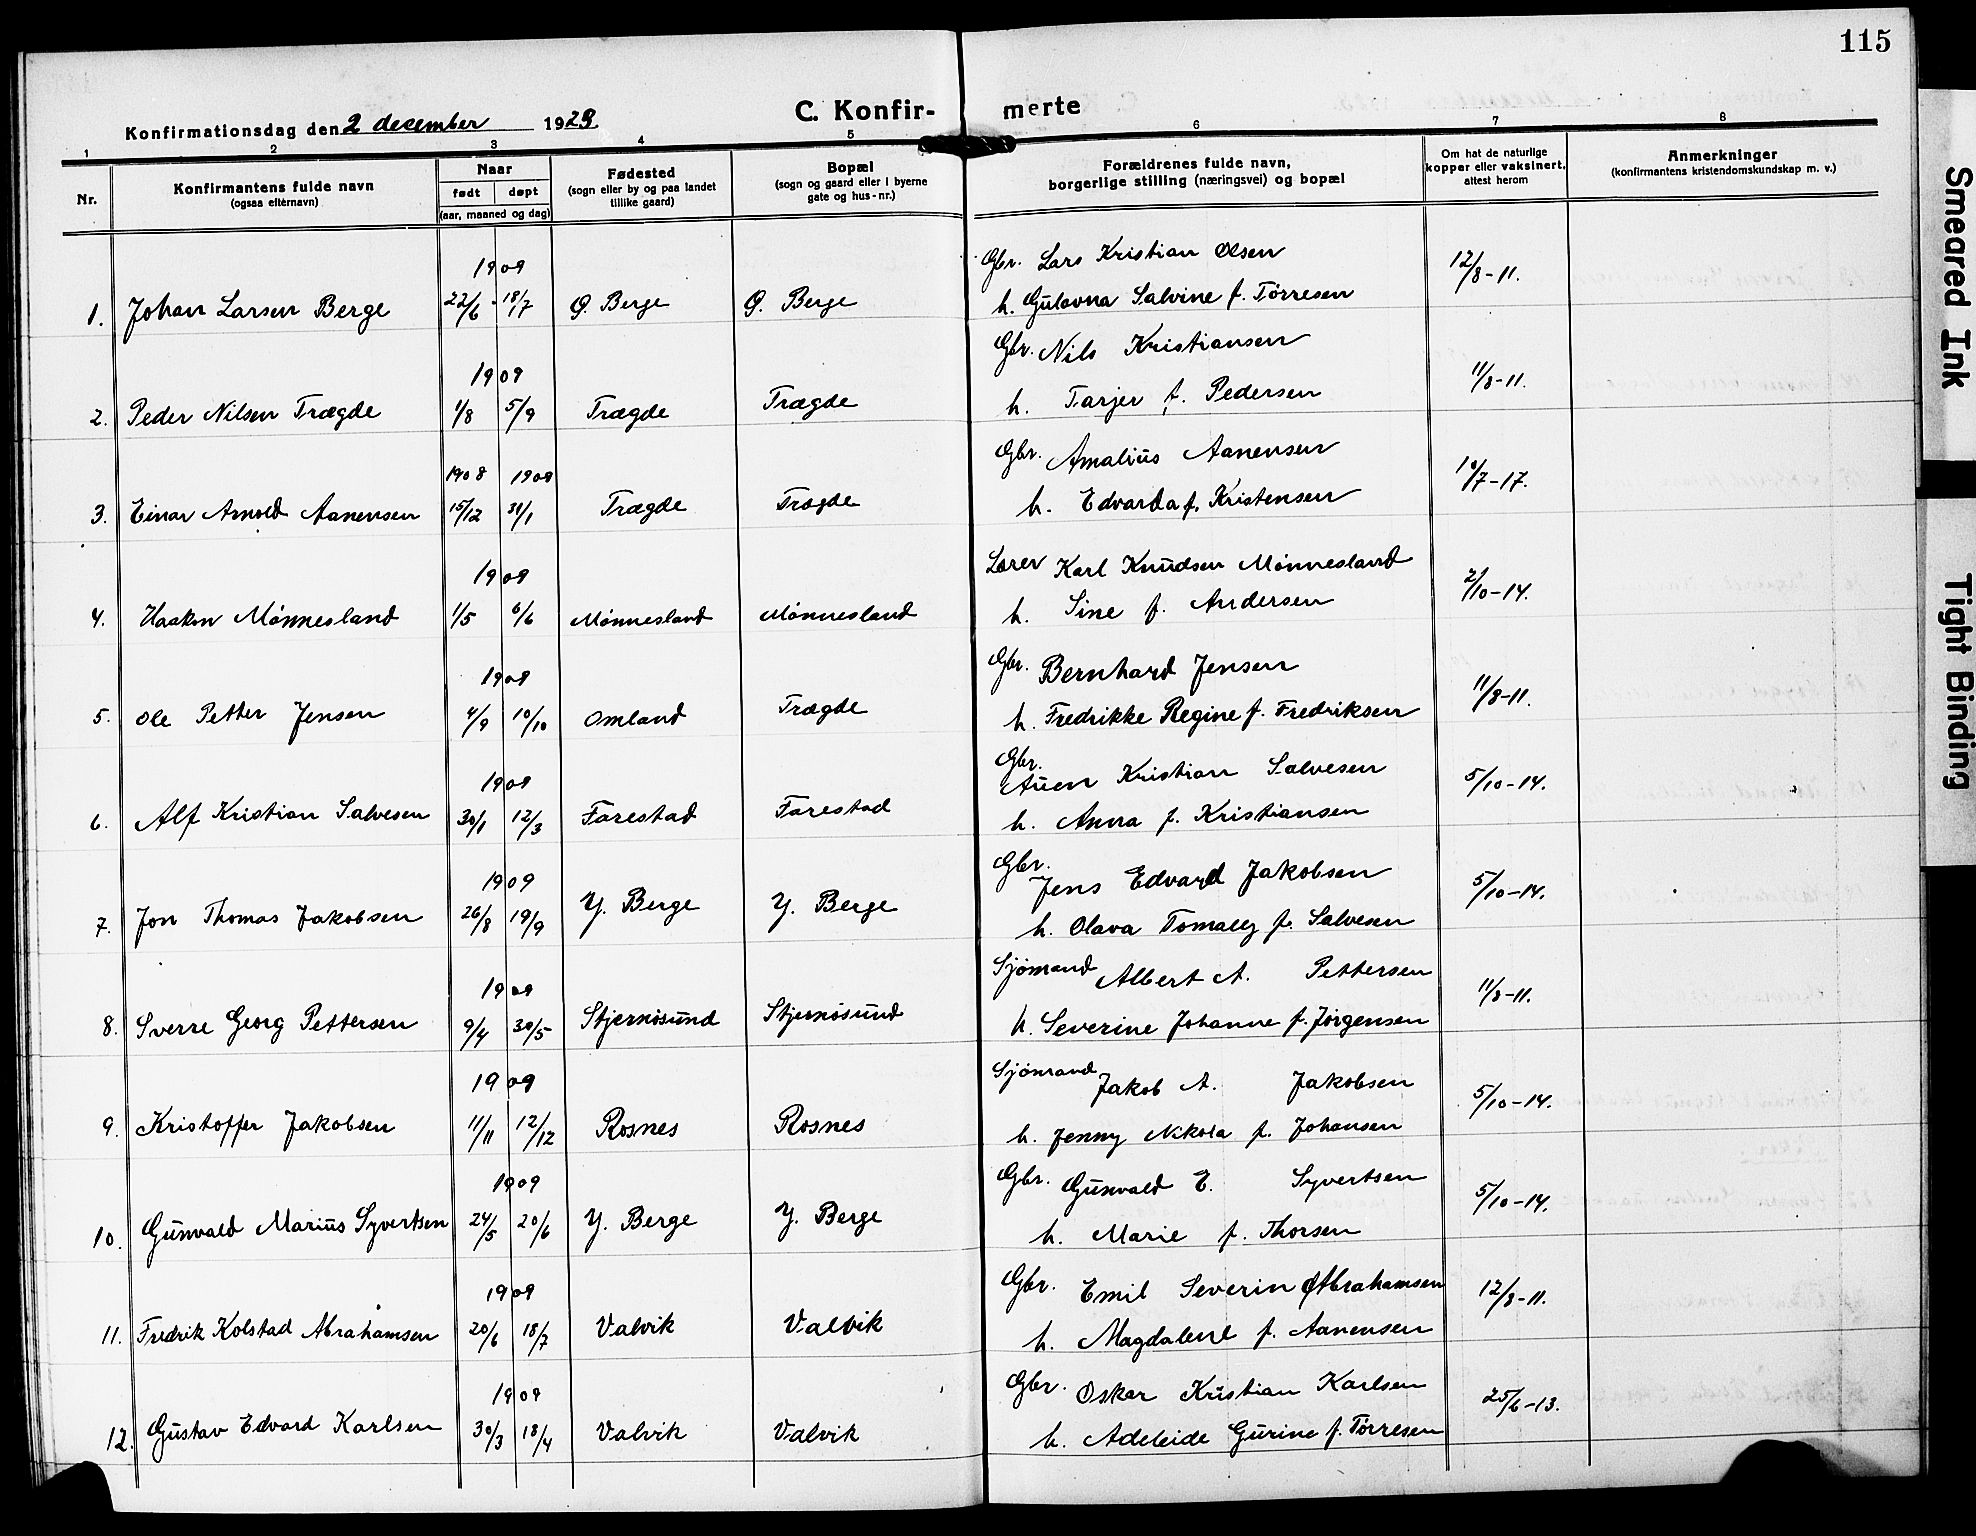 115
C. Konfirmerte
Konfirmationsdag den 2 december 1923
1 2 3 4 5 6 7 8
Nr.
Konfirmantens fulde navn
(ogsaa efternavn)
Naar
født døpt
(aar, maaned og dag)
Fødested
(sogn eller by og paa landet
tillike gaard)
Bopæl
(sogn og gaard eller i byerne
gate og hus-nr.)
Forældrenes fulde navn,
borgerlige stilling (næringsvei) og bopæl
Om hat de naturlige
kopper eller vaksinert,
attest herom
Anmerkninger
(konfirmantens kristendomskundskap m. v.)
1909 Gbr. Lars Kristian Olsen 12/8-11.
1. Johan Larsen Berge 22/6 - 18/7 Ø. Berge Ø. Berge h. Gulovna Salvine f. Tørresen
1909 Gbr. Nils Kristiansen 11/8-11.
2. Peder Nilsen Trægde 1/8 5/9 Trægde Trægde h. Tarjer f. Pedersen
1908 1909 Gbr. Amalius Aanensen 10/7-17.
3. Einar Arnold Aanensen 15/12 31/1 Trægde Trægde h. Edvarda f. Kristensen
1909 Lærer Karl Knudsen Mønnesland 2/10-14.
4. Haakon Mønnesland 1/5 6/6 Mønnesland Mønnesland h. Sine f. Andersen
1909 Gbr. Bernhard Jensen 11/8-11.
5. Ole Petter Jensen 4/9 10/10 Omland Trægde h. Fredrikke Regine f. Fredriksen
1909 Gbr. Auen Kristian Salvesen 5/10-14.
6. Alf Kristian Salvesen 30/1 12/3 Farestad Farestad h. Anna f. Kristiansen
1909 Gbr. Jens Edvard Jakobsen 5/10-14.
7. Jon Thomas Jakobsen 26/8 19/9 Y. Berge Y. Berge h. Olava Tomaly f. Salvesen
1909 Sjømand Albert A. Pettersen 11/8-11.
8. Sverre Georg Pettersen 9/4 30/5 Stjernøsund Stjernøsund h. Severine Johanne f. Jørgensen
1909 Sjømand Jakob A. Jakobsen 5/10-14.
9. Kristoffer Jakobsen 11/11 12/12 Rosnes Rosnes h. Jenny Nikola f. Johansen
1909 Gbr. Gunvald E. Syvertsen 5/10-14.
10. Gunvald Marius Syvertsen 24/5 20/6 Y. Berge Y. Berge h. Marie f. Thorsen
1909 Gbr. Emil Severin Abrahamsen 12/8-11.
11. Fredrik Kolstad Abrahamsen 20/6 18/7 Valvik Valvik h. Magdalene f. Aanensen
1909 Gbr. Oskar Kristian Karlsen 25/6-13.
12. Gustav Edvard Karlsen 30/3 18/4 Valvik Valvik h. Adeleide Gurine f. Tørresen
Smeared Ink
Tight Binding